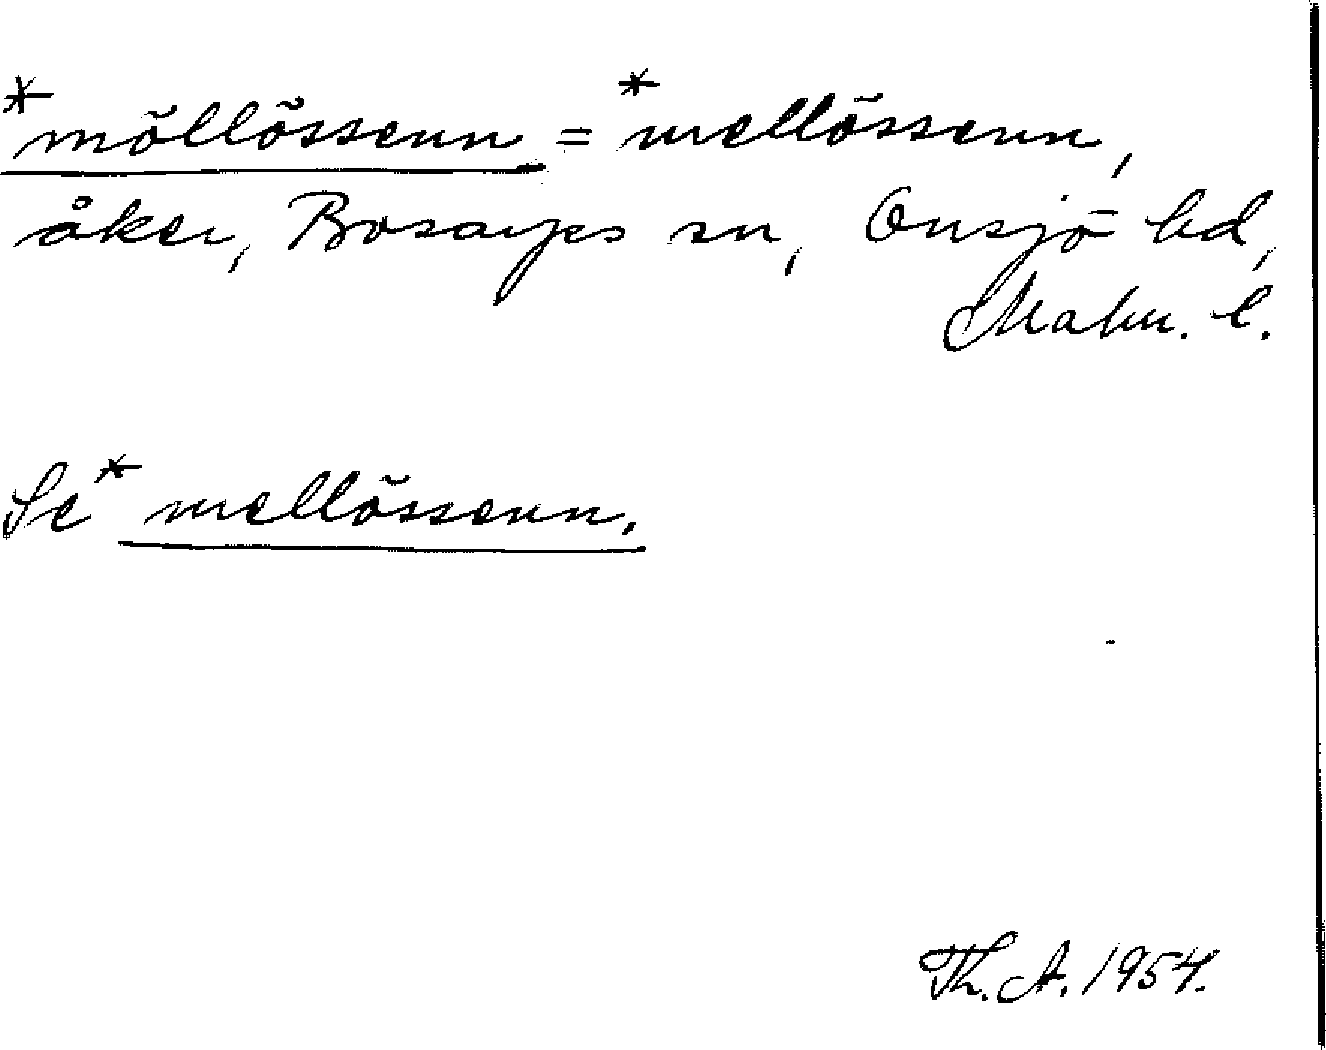 *möllössenn = *mellössenn,
åker, Bosarps sn, Onsjö hd,
Malm. l.
Se *mellössenn.
Th. A. 1954.